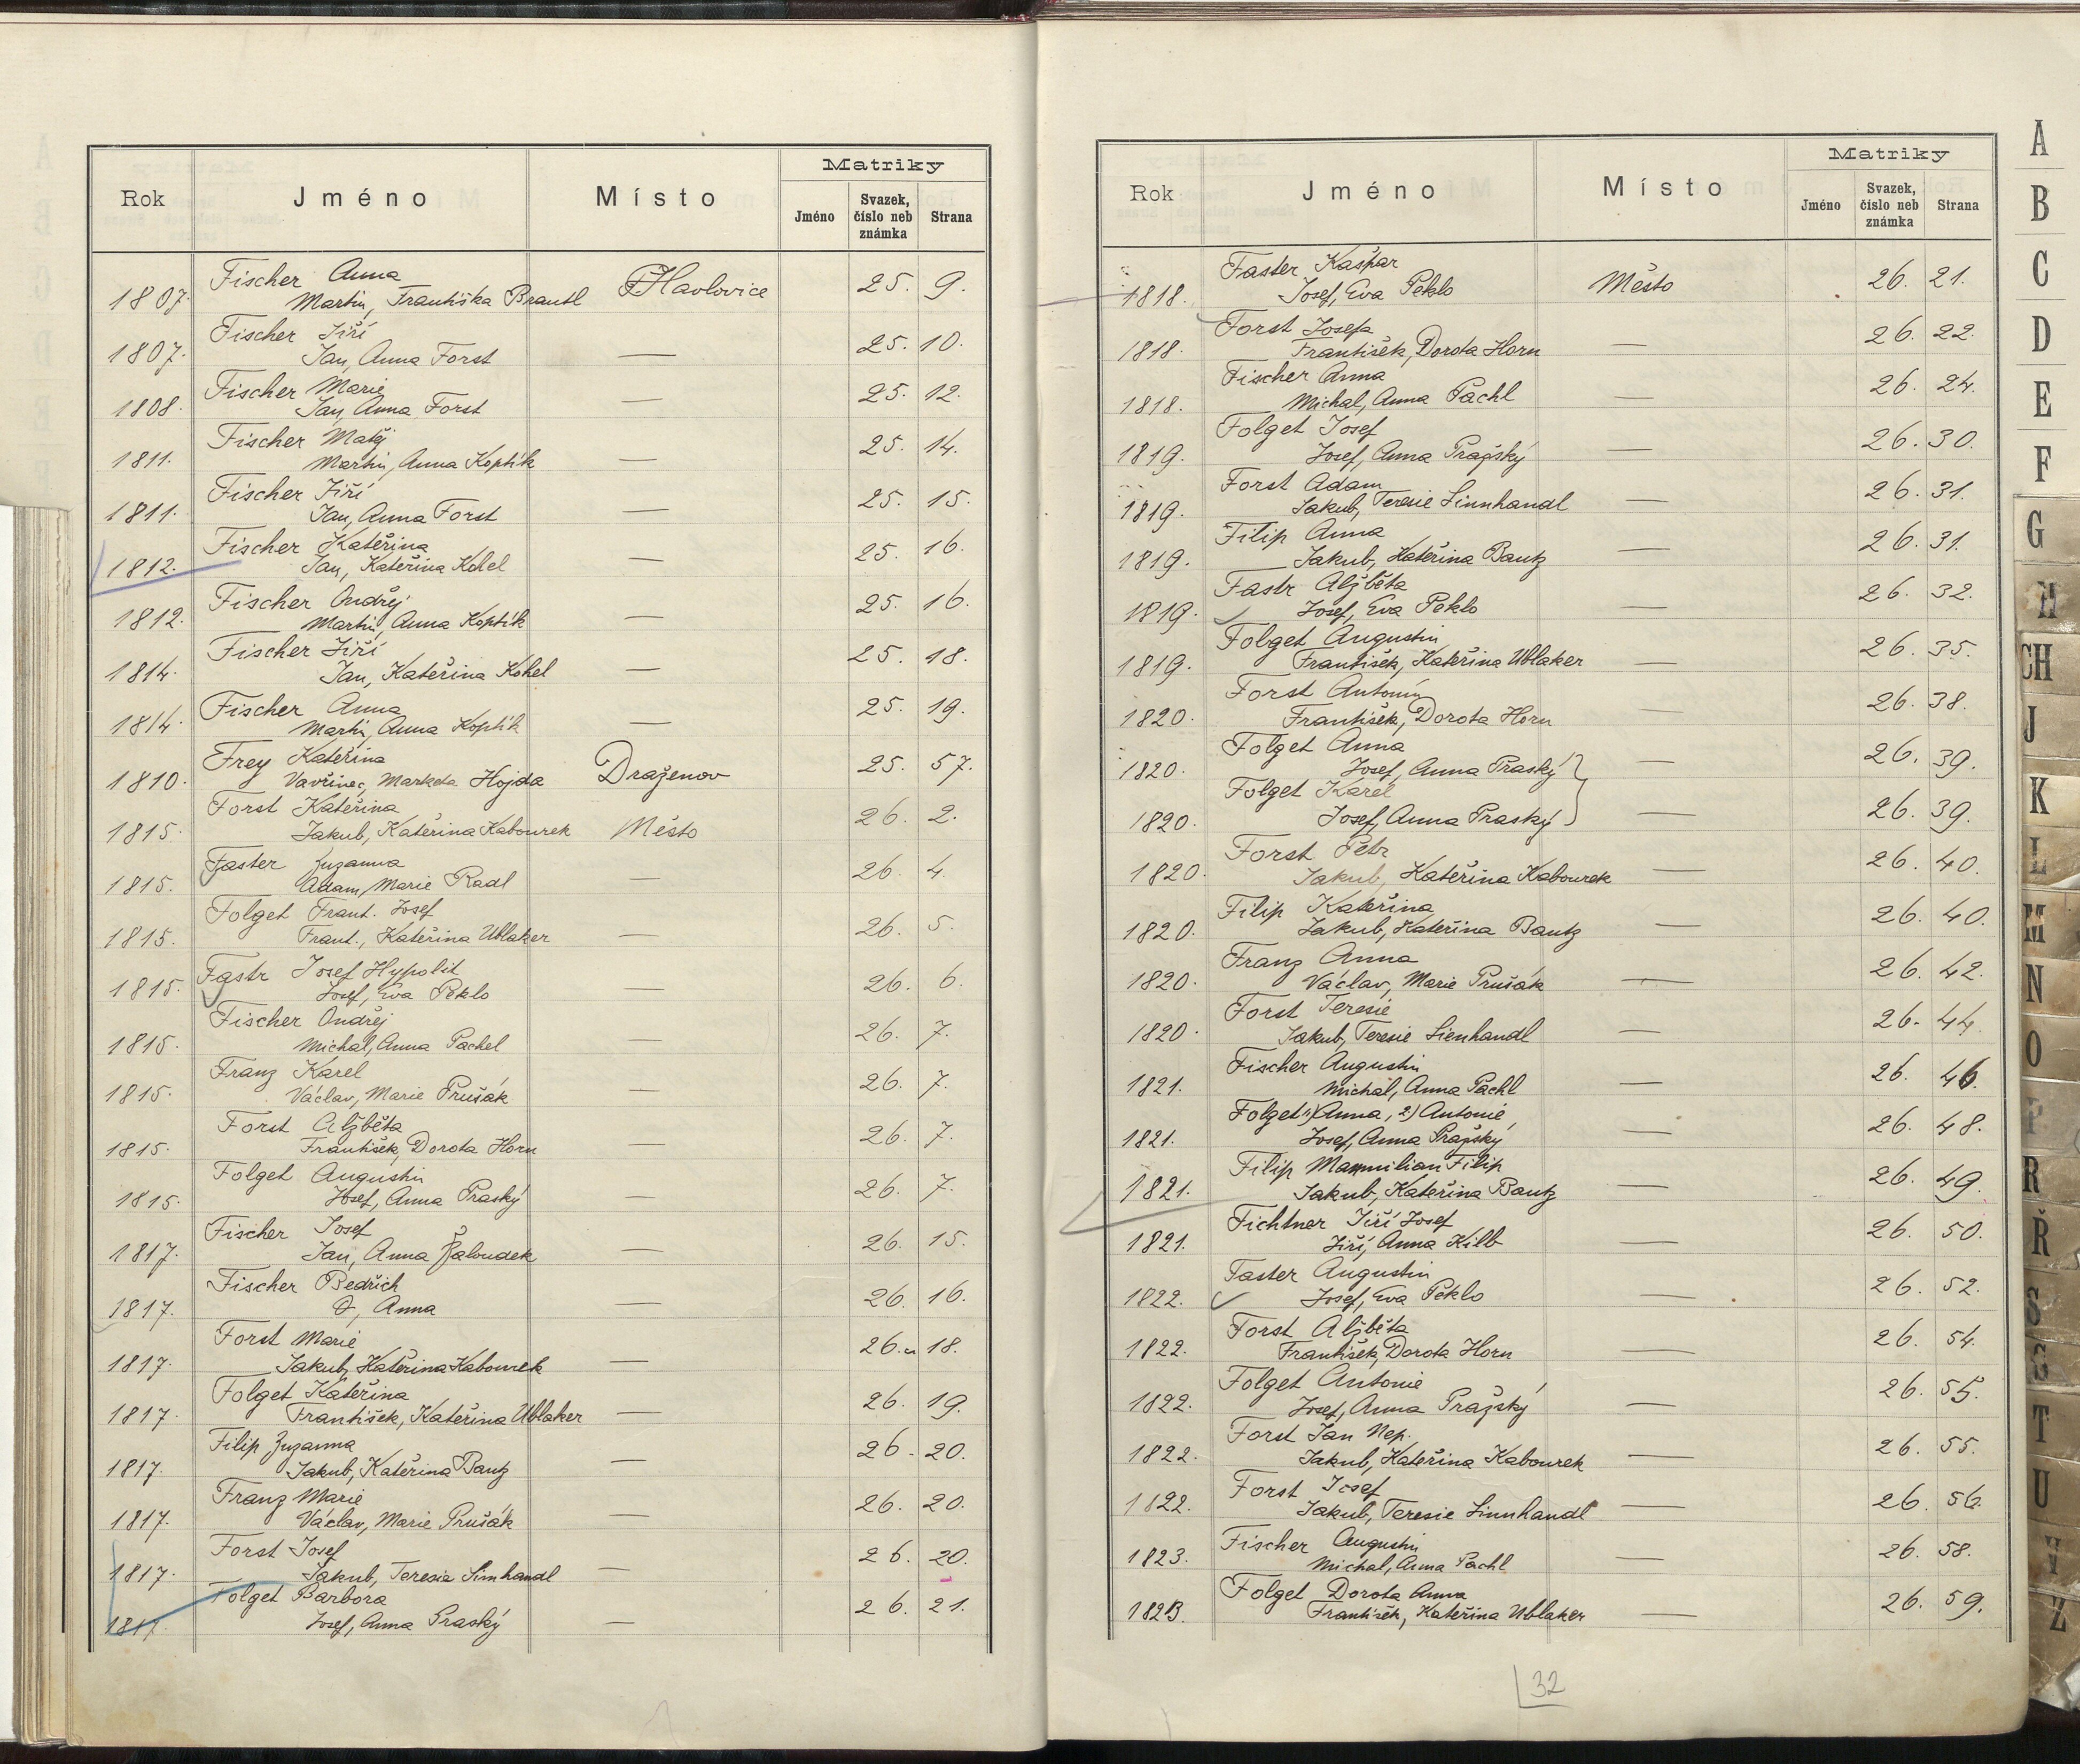 Matriky
Rok Jméno Místo Jméno Svazek, číslo neb známka Strana
Fischer Anna
1807. Martin, Františka Brantl Havlovice 25. 9.
Fischer Jiří
1807. Jan, Anna Forst — 25. 10.
Fischer Marie
1808. Jan, Anna Forst — 25. 12.
Fischer Matěj
1811. Martin, Anna Koptik — 25. 14.
Fischer Jiří
1811. Jan, Anna Forst — 25. 15.
Fischer Kateřina
1812. Jan, Kateřina Kohel — 25. 16.
Fischer Ondřej
1812. Martin, Anna Koptik — 25. 16.
Fischer Jiří
1814. Jan, Kateřina Kohel — 25. 18.
Fischer Anna
1814. Martin, Anna Koptik — 25. 19.
Frey Kateřina
1810. Vavřinec, Marketa Hojda Draženov 25. 57.
Forst Kateřina
1815. Jakub, Kateřina Kabourek Město 26. 2.
Faster Zuzanna
1815. Adam, Marie Radl — 26. 4.
Folget Frant. Josef
1815. Frant., Kateřina Ublaker — 26. 5.
Fastr Josef Hypolit
1815. Josef, Eva Peklo — 26. 6.
Fischer Ondřej
1815. Michal, Anna Pachel — 26. 7.
Franz Karel
1815. Václav, Marie Prušák — 26. 7.
Forst Alžběta
1815. František, Dorota Horn — 26. 7.
Folget Augustin
1815. Josef, Anna Praský — 26. 7.
Fischer Josef
1817. Jan, Anna Žaloudek — 26. 15.
Fischer Bedřich
1817. O, Anna — 26. 16.
Forst Marie
1817. Jakub, Kateřina Kabourek — 26. 18.
Folget Kateřina
1817. František, Kateřina Ublaker — 26. 19.
Filip Zuzanna
1817. Jakub, Kateřina Bautz — 26. 20.
Franz Marie
1817. Václav, Marie Prušák — 26. 20.
Forst Josef
1817. Jakub, Teresie Simhandl — 26. 20.
Folget Barbora
1817. Josef, Anna Praský — 26. 21.
Matriky
Rok Jméno Místo Jméno Svazek, číslo neb známka Strana
Faster Kašpar
1818. Josef, Eva Peklo Město 26. 21.
Forst Josefa
1818. František, Dorota Horn — 26. 22.
Fischer Anna
1818. Michal, Anna Pachl — 26. 24.
Folget Josef
1819. Josef, Anna Pražský — 26. 30.
Forst Adam
1819. Jakub, Teresie Linnhandl — 26. 31.
Filip Anna
1819. Jakub, Kateřina Bautz — 26. 31.
Fastr Alžběta
1819. Josef, Eva Peklo — 26. 32.
Folget Augustin
1819. František, Kateřina Ublaker — 26. 35.
Forst Antonín
1820. František, Dorota Horn — 26. 38.
Folget Anna
1820. Josef, Anna Praský — 26. 39.
Folget Karel
1820. Josef, Anna Praský — 26. 39.
Forst Petr
1820. Jakub, Kateřina Kabourek — 26. 40.
Filip Kateřina
1820. Jakub, Kateřina Bautz — 26. 40.
Franz Anna
1820. Václav, Marie Prušák — 26. 42.
Forst Teresie
1820. Jakub, Teresie Lienhandl — 26. 44.
Fischer Augustin
1821. Michal, Anna Pachl — 26. 46.
Folget 1) Anna, 2) Antonie,
1821. Josef, Anna Pražský — 26. 48.
Filip Maxmilian Filip
1821. Jakub, Kateřina Bautz — 26. 49.
Fichtner Jiří Josef
1821. Jiří, Anna Kilb — 26. 50.
Faster Augustin
1822. Josef, Eva Peklo — 26. 52.
Forst Alžběta
1822. František, Dorota Horn — 26. 54.
Folget Antonie
1822. Josef, Anna Pražský — 26. 55.
Forst Jan Nep.
1822. Jakub, Kateřina Kabourek — 26. 55.
Forst Josef
1822. Jakub, Teresie Linnhandl — 26. 56.
Fischer Augustin
1823. Michal, Anna Pachl — 26. 58.
Folget Dorota Anna
1823. František, Kateřina Ublaker — 26. 59.
32
A
B
C
D
E
F
G
H
CH
J
K
L
M
N
O
P
R
Ř
S
Š
T
U
V
Z